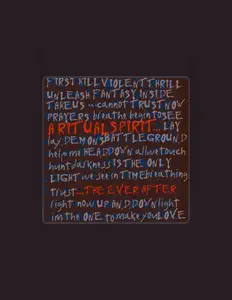 FIRST KILL VIOLENT THRILL
UNLEASH FANTASY INSIDE
TAKE US ...cannot TRUST NOW
PRAYERS breathe begin TO SEE
A RITUAL SPIRIT... LAY
lay DEMONS BATTLEGROUND
help me HEAD DOWN all we touch
hunt darkness IS THE ONLY
LIGHT we see in TIME breathing
trust ...THE EVER AFTER
right now UP AND DOWN light
im the ONE to make you LOVE